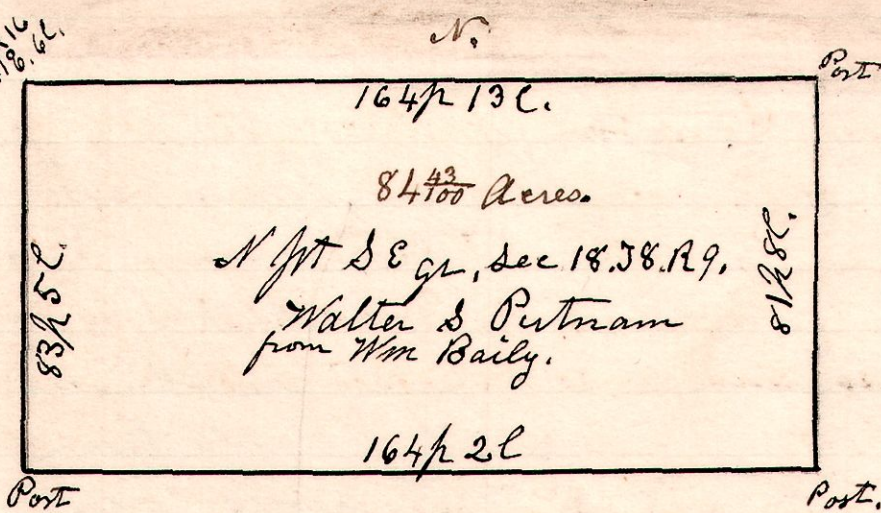 N.
Post
164p 13l.
84 43/100 Acres.
N pt S E qr, Sec 18. T8. R9.
Walter S Putnam
from Wm Baily.
83p 5l.
81p 8l.
164p 2l
Post
Post.